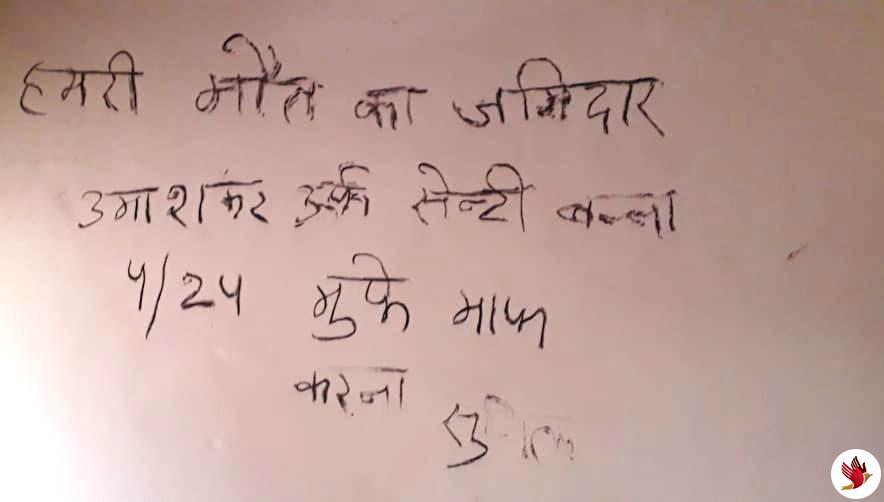 हमरी मौत का जमिदार
उमाशकर उर्फ सेन्टी बन्ना
५/२५ मुफे माफ
करना